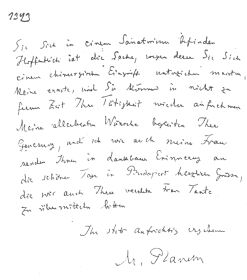 1949
Sie sich in einem Sanatorium befinden
Hoffentlich ist die Sache, wegen deren Sie Sich
einem chirurgischen Eingriffe unterziehen mussten,
keine ernste, und Sie können in nicht zu
ferner Zeit Ihre Tätigkeit wieder aufnehmen
Meine allerbesten Wünsche begleiten Ihre
Genesung, und ich wie auch meine Frau
senden Ihnen in dankbarer Erinnerung an
die schönen Tage in Budapest herzliche Grüsse,
die wir auch Ihrer verehrten Frau Tante
zu übermitteln bitten
Ihr stets aufrichtig ergebener
M. Planck